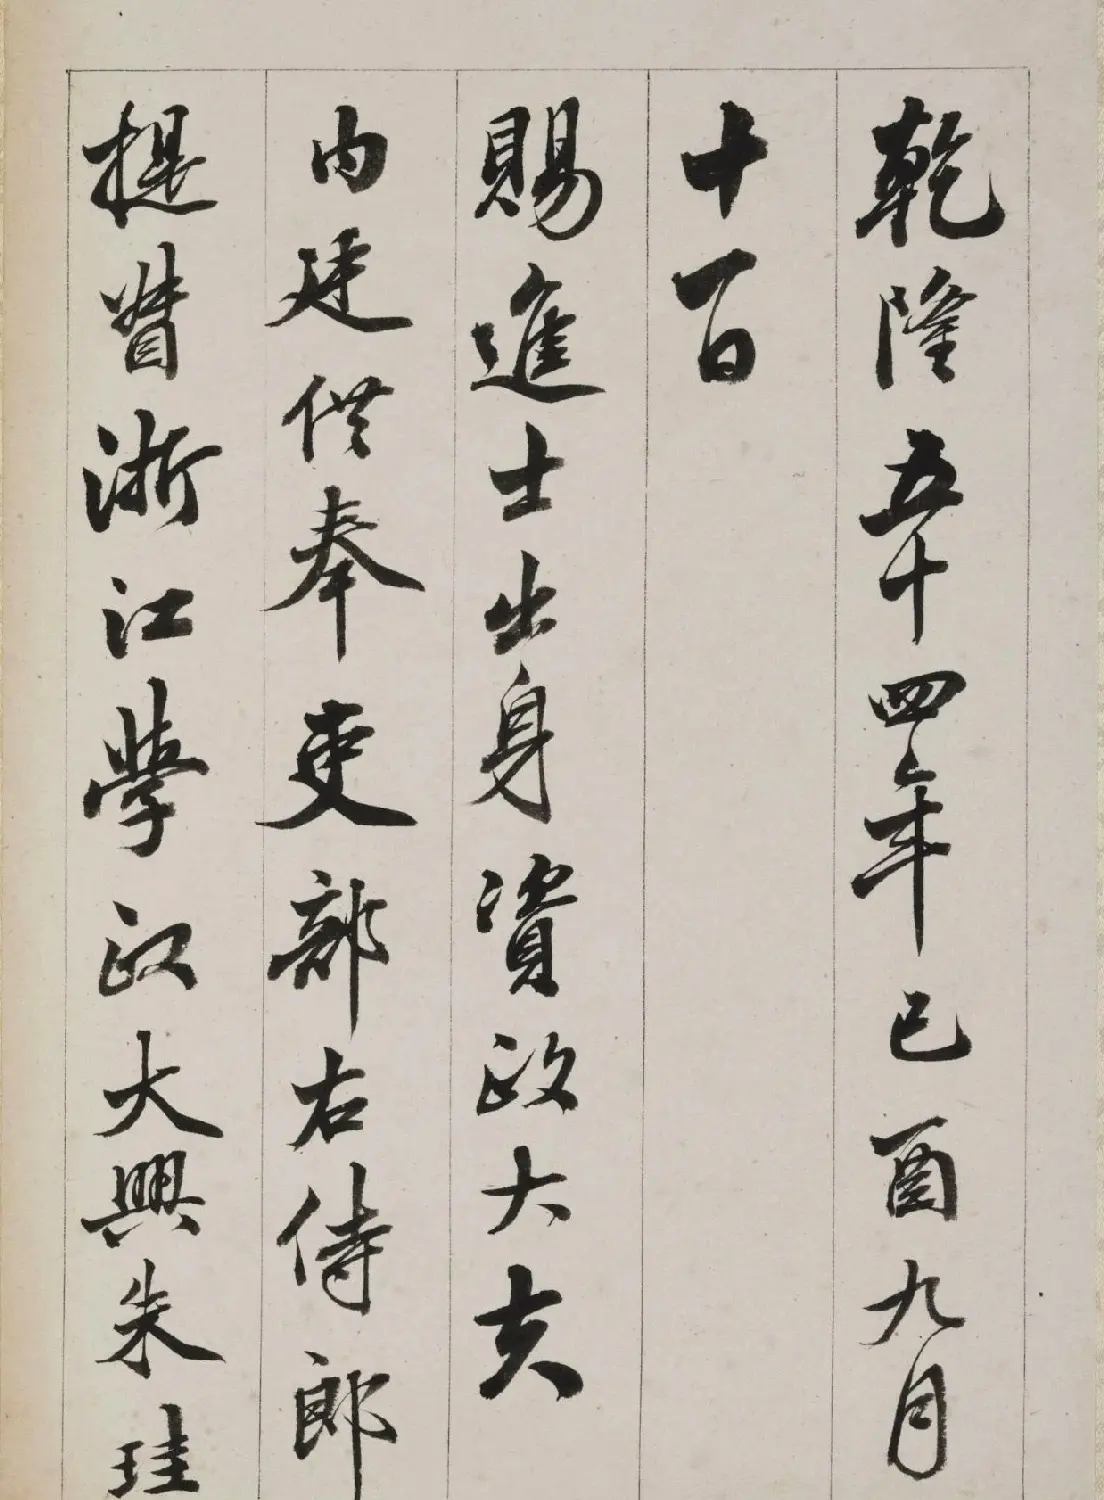 乾隆五十四年己酉九月
十一日
賜進士出身資政大夫
内廷供奉吏部右侍郎
提督浙江學政大興朱珪